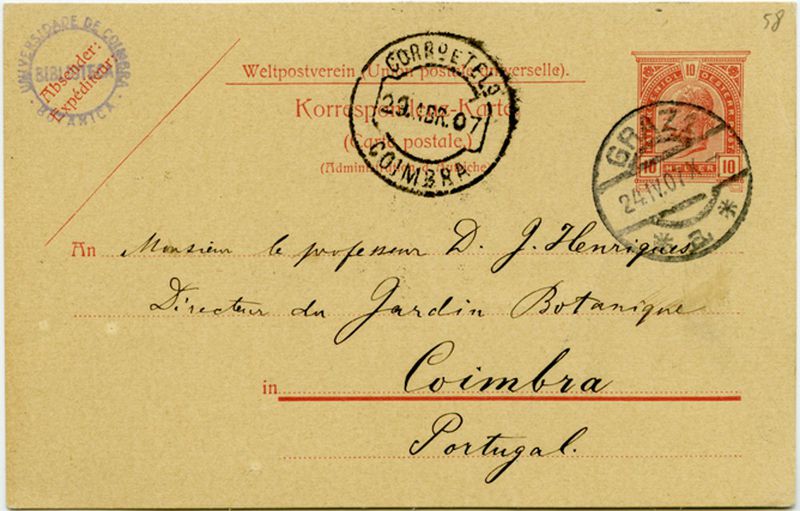 58
UNIVERSIDADE DE COIMBRA
BIBLIOTECA
BOTANICA
Absender:
Expéditeur:
Weltpostverein (Union postale universelle).
Korrespondenz-Karte
(Carte postale.)
CORRO E TELO
29. ABR. 07
COIMBRA
10
10 HELLER 10
GRAZ 1
24.IV.07
* a *
An Monsieur le professeur D. J. Henriques
Directeur du Jardin Botanique
in Coimbra
Portugal.